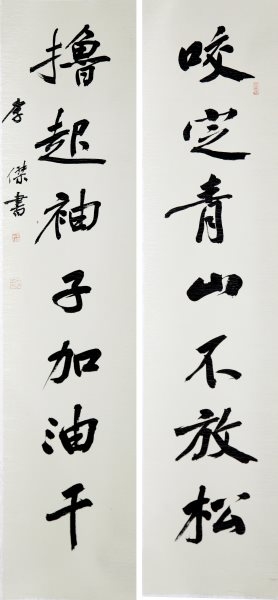 咬定青山不放松
撸起袖子加油干
李傑書